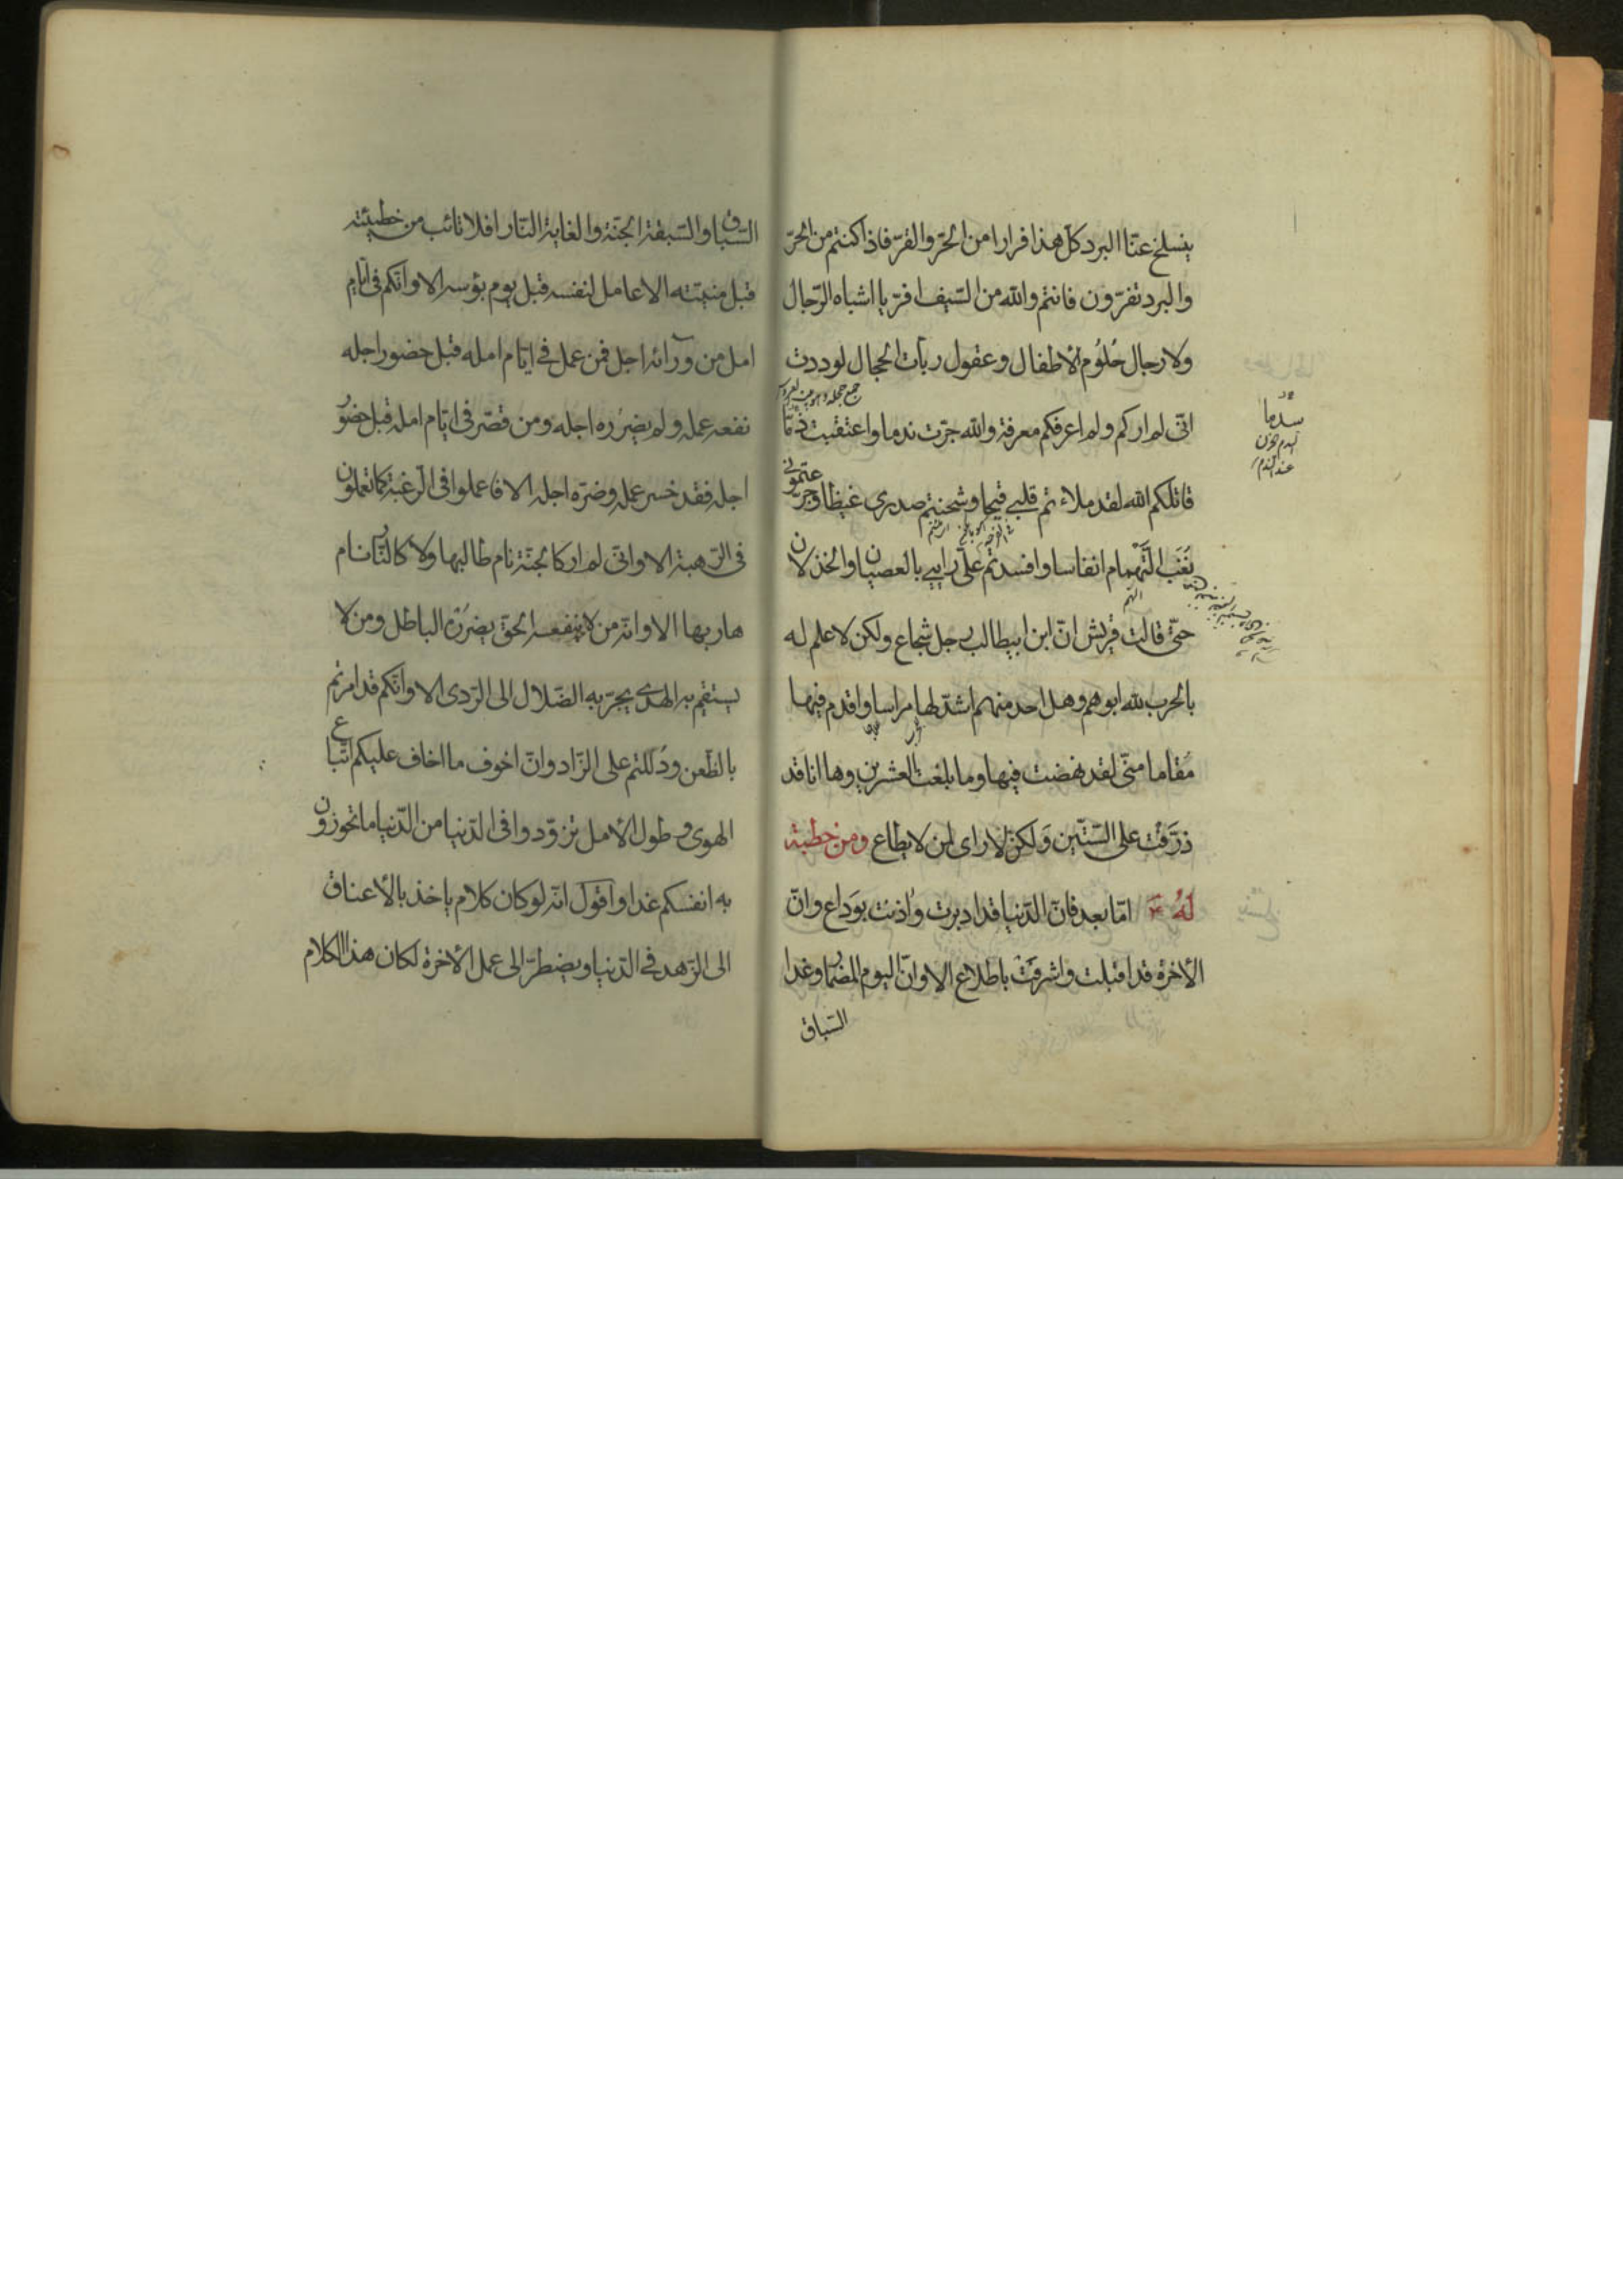 ينسلخ عنّا البرد كلّ هذا فرارا من الحرّ والقرّ فاذا كنتم من الحرّ
والبرد تفرّون فانتم والله من السّيف افرّ يا اشباه الرّجال
ولا رجال حُلُوم الأطفال وعقول ربّات الحجال لوددت
انّى لم اركم ولم اعرفكم معرفة والله جرّت ندما واعتقبت ذمّا
قاتلكم الله لقد ملاءتم قلبى قيحا وشحنتم صدرى غيظا وجرّعتمونى
نُغَبَ التَّهْمام انفاسا وافسدتم علىّ رايى بالعصيان والخذلان
حتّى قالت قريش انّ ابن ابيطالب رجل شجاع ولكن لا علم له
بالحرب لله ابوهم وهل احد منهم اشدّ لها مراسا واقدم فيها
مُقاما منّى لقد نهضت فيها وما بلغت العشرين وها انا قد
ذرَّفْتُ على السّتّين وَلكن لا راى لمن لا يطاع ومن خطبة
لَهُ امّا بعد فانّ الدّنيا قد ادبرت واذنت بوَداع وانّ
الأخرة قد اقبلت واشرفت باطلاع الا وانّ اليوم المضمار وغدا
السّباق
سدما
السّباق والسّبقة الجنّة والغاية النّار افلا تائب من خطيئته
قبل منيّته الا عامل لنفسه قبل يوم بؤسه الا وانّكم فى ايّام
امل من ورائه اجل فمن عمل فى ايّام امله قبل حضور اجله
نفعه عمله ولم يضرُره اجله ومن قصّر فى ايّام امله قبل حضور
اجله فقد خسر عمله وضرّه اجله الا فاعملوا فى الرّغبة كما تعملون
فى الرّهبة الا وانّى لم ار كالجنّة نام طالبها ولا كالنّار نام
هاربها الا وانّه من لا ينفعه الحقّ يضرُرْه الباطل ومن لا
يستقيم به الهدى يجرّ به الضّلال الى الرّدى الا وانّكم قد امرتم
بالظّعن ودُللتم على الزّاد وانّ اخوف ما اخاف عليكم اتّباع
الهوى وطول الأمل تزوّدوا فى الدّنيا من الدّنيا ما تحوزون
به انفسكم غدا واقول انّه لو كان كلام ياخذ بالأعناق
الى الزّهد فى الدّنيا ويضطرّ الى عمل الأخرة لكان هذا الكلام